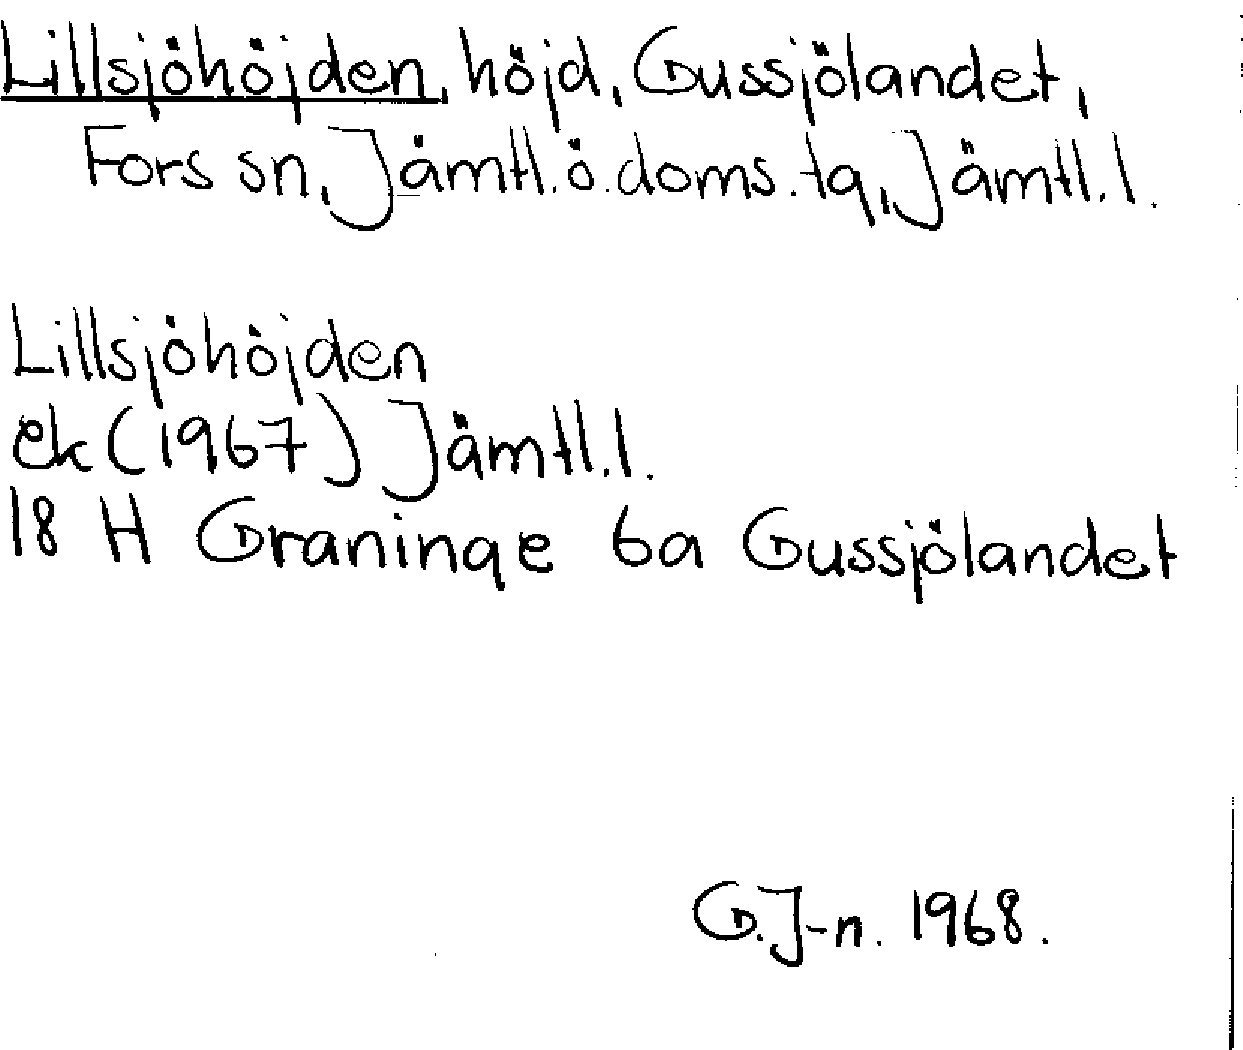 Lillsjöhöjden, höjd, Gussjölandet,
Fors sn, Jämtl. ö. doms. tg, Jämtl. l.
Lillsjöhöjden
ek (1967) Jämtl. l.
18 H Graninge 6a Gussjölandet
G. J-n. 1968.